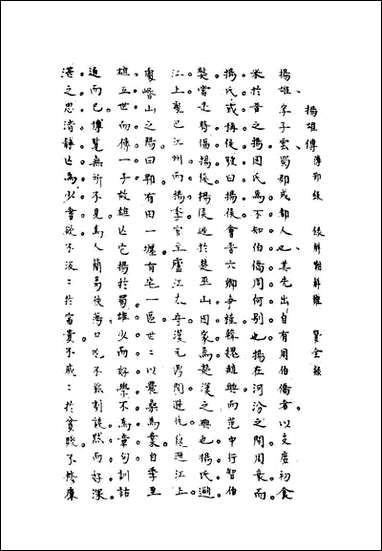 揚雄傳 傳 錄 錄解嘲解難 贊全錄
揚雄、字子雲蜀郡成都人也。其先出自有周伯僑者。以支庶初食
采於晉之揚。因氏焉。不知伯僑周何別也。揚在河汾之間。周衰而
揚氏或稱侯。號曰揚侯。會晉六卿爭權。韓魏趙興。而范中行智伯
獘。當是時偪揚侯。揚侯逃於楚巫山。因家焉。楚漢之興也。揚氏遡
江上。處巴江州。而揚季官至廬江太守。漢元鼎間避仇。復遡江上。
處崏山之陽。曰郫。有田一㕓。有宅一區。世〻以農桑爲業。自季至
雄五世而傳一子。故雄亡它揚於蜀。雄少而好學。不爲章句。訓詁
通而已。博覽無所不見。爲人簡易佚蕩。口吃不能劇談。默而好深
湛之思。清靜亡爲。少耆欲。不汲〻於富貴。不戚〻於貧賤。不修廉